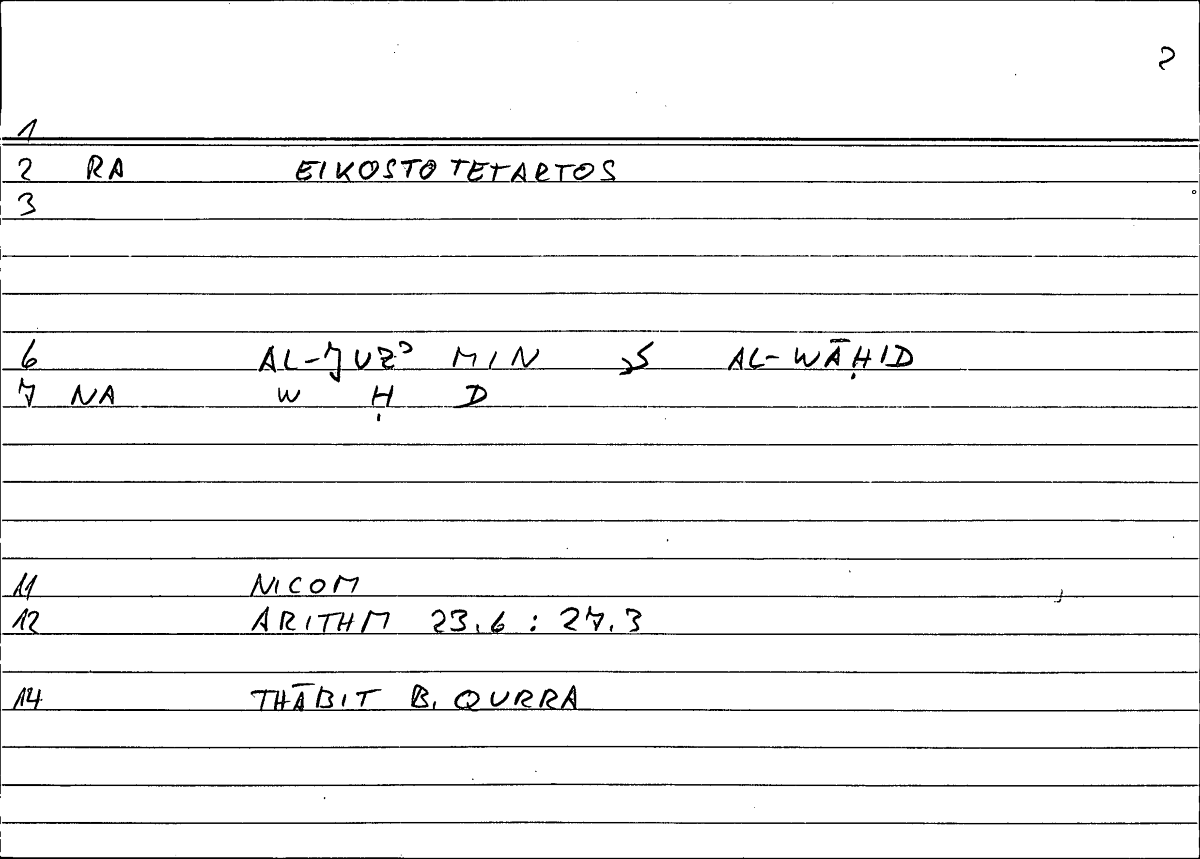 2
1
2 RA EIKOSTO TETARTOS
3
6 AL-JUZʾ MIN AL-WĀḤID
7 NA W Ḥ D
11 NICOM
12 ARITHM 23.6 : 27.3
14 THĀBIT B. QURRA